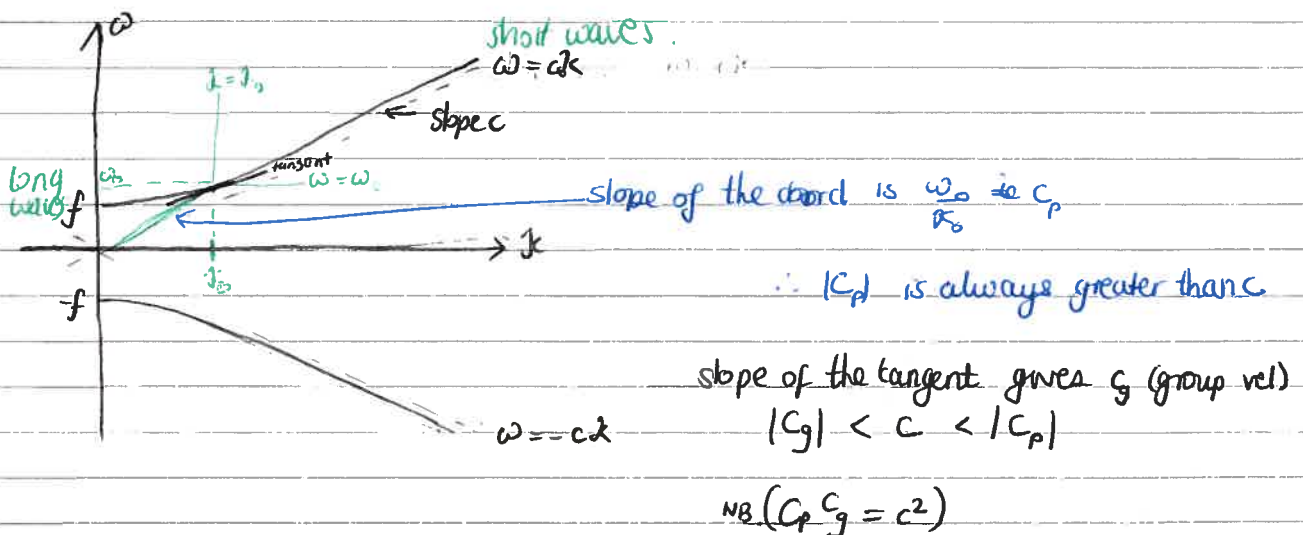 ω
short waves.
ω = ck
k = k₀
slope c
tangent
long
waves
ω₀
ω = ω
f
slope of the chord is ω₀/k₀ ie Cp
k
k₀
∴ |Cp| is always greater than c
-f
slope of the tangent gives cg (group vel)
|Cg| < c < |Cp|
ω = -ck
NB (Cp Cg = c²)